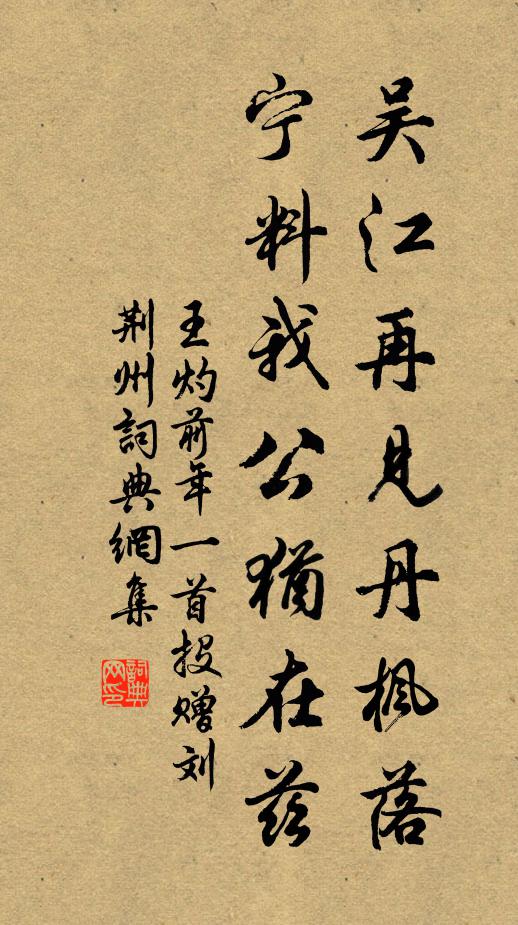 吴江再见丹枫落
宁料我公犹在兹
王灼前年一首投赠刘
荆州詞典網集
詞典
网印